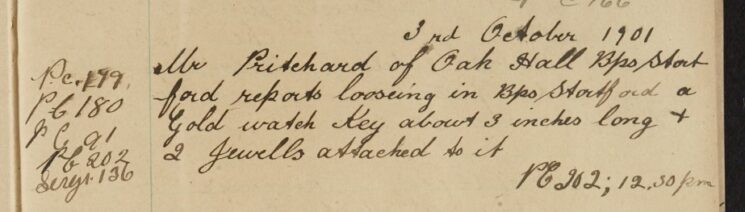 3rd October 1901
Mr Pritchard of Oak Hall Bps Stort
ford reports looseing in Bps Stortford a
Gold watch Key about 3 inches long +
2 Jewells attached to it
PC 202; 12.30 pm
P.C. 199.
PC 180
P.C. 91
PC 202
Sergt. 136